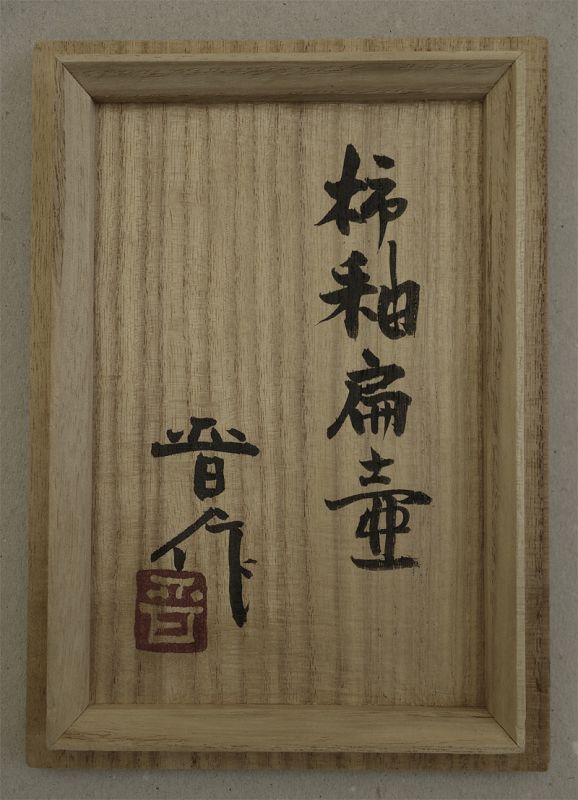 柿釉扁壷
晋作
晋